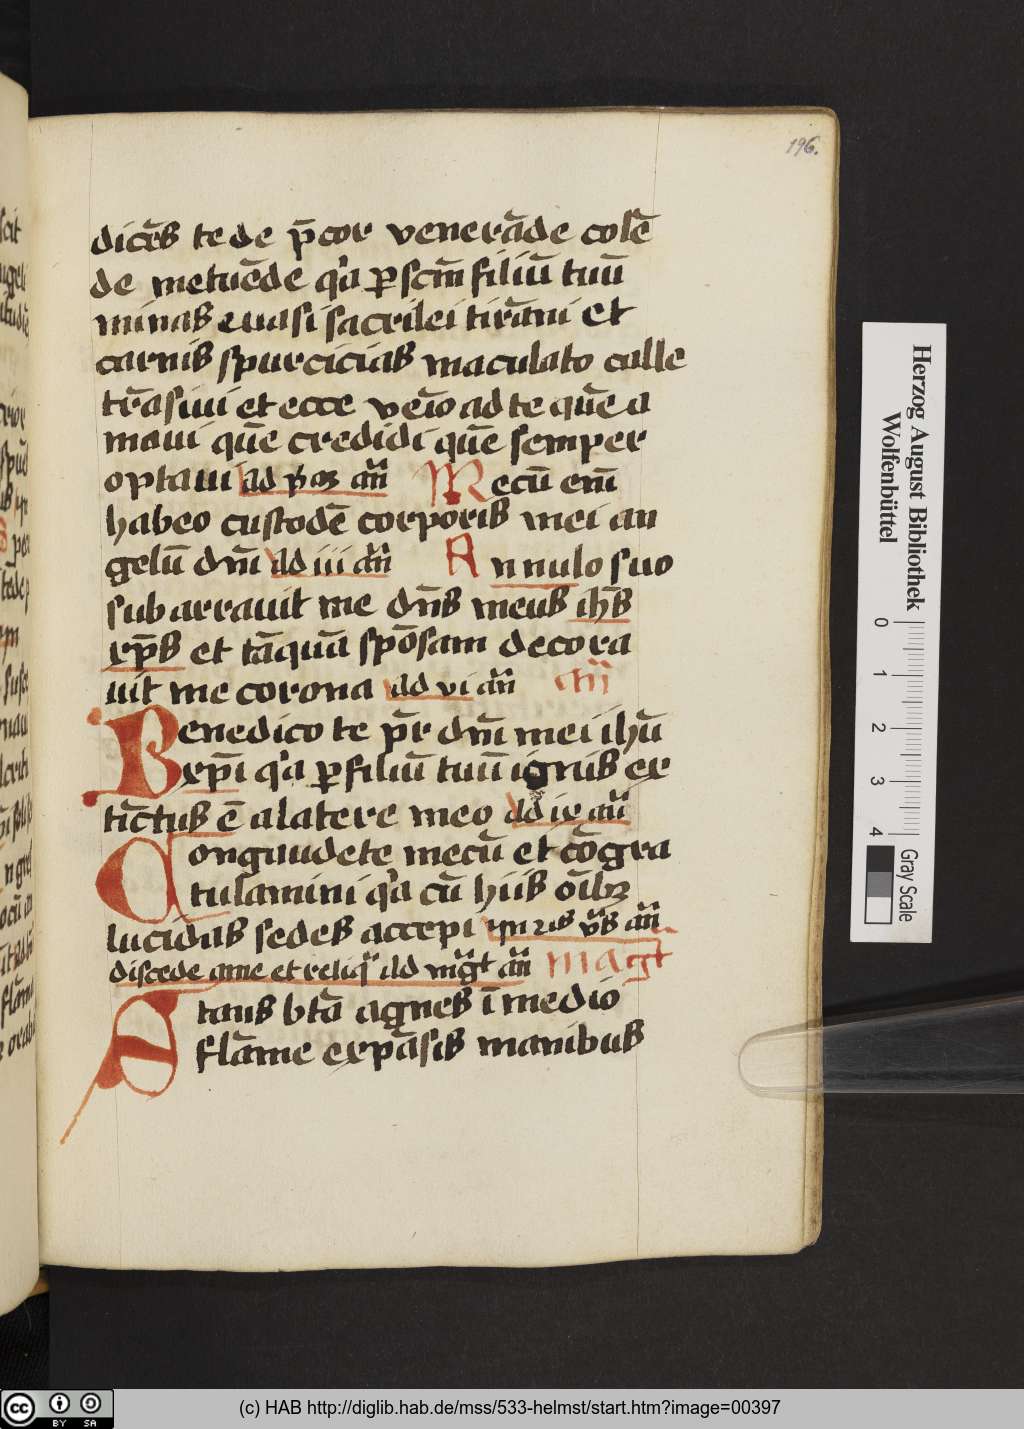 196.
dicēs te de p̄cor venerāde colē
de metuēde q'a ꝑ scm̄ filiū tuū
minas euasi sacrilei tirāni et
carnis spurcicias maculato calle
trāsiui et ecce veīo ad te quē a
maui quē credidi quē semper
optaui ad añ Mecū enī
habeo custodē corporis mei an
gelū dm̄ ad iii añ Annulo suo
subarrauit me dn̄s meus ih̄s
xp̄s et tāquā spōsam decora
uit me corona ad vi añ añ
Benedico te pr̄ dn̄i mei ihū
xp̄i q'a ꝑ filiū tuū ignis ex
tīctus ē a latere meo ad ix añ
Congaudete mecū et cōgra
tulamini q'a cū hiis oībꝫ
lucidas sedes accepi vs añ
discede a me et reliq' ad mḡt añ magt
Stans btā agnes ī medio
flāme expāsis manibus
Herzog August Bibliothek
Wolfenbüttel
0 1 2 3 4
Gray Scale
cc BY SA
(c) HAB http://diglib.hab.de/mss/533-helmst/start.htm?image=00397